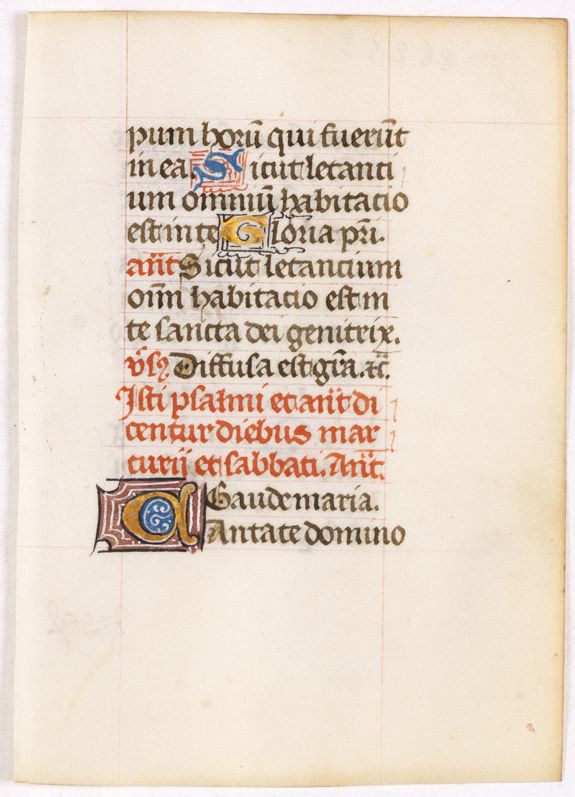 pum horū qui fuerūt
in ea. Sicut letanti
um omniū habitacio
est in te Gloria pr̄i.
an̄t Sicut letancium
om̄ habitacio est in
te sancta dei genitrix.
v̄s Diffusa est gr̄a. ⁊c̄.
Isti psalmi et an̄t di
centur diebus mar
turij et sabbati. An̄t.
Gaude maria.
Cantate domino